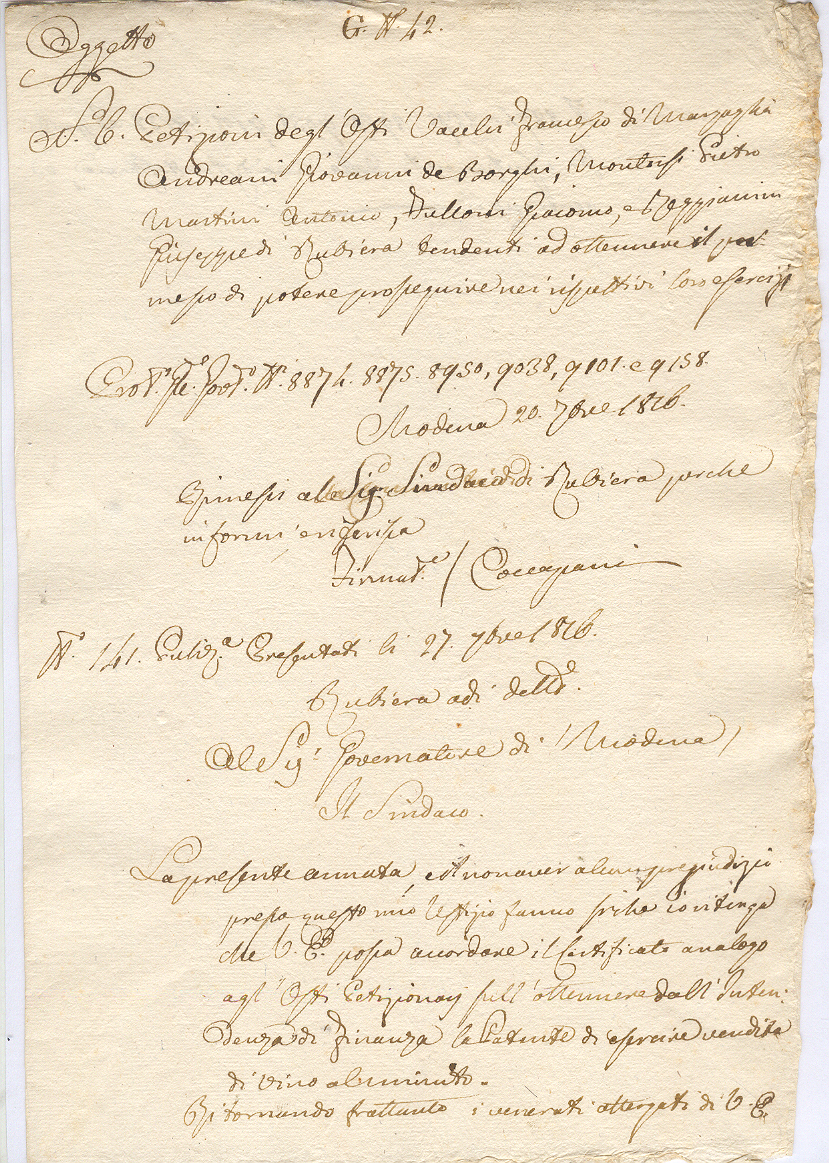 G. N. 42.
Oggetto
N.° 6. Petizioni degl' Osti Vacchi Francesco di Marzaglia
Andreani Giovanni de Borghi, Montorsi Pietro
Martini Antonio, Fulloni Giacomo, e Reggianini
Giuseppe di Rubiera tendenti ad ottennere il per=
messo di potere proseguire nei rispettivi loro esercizj
Prot. N. 8874. 8875. 8950, 9038, 9101. e 9158.
Modena 20. 7bre 1816.
Rimessi al Sig.r Sindaco di Rubiera perche
informi, e riferisca
Firmat.° / Coccapani
N.° 141. Puliz.a Presentati li 27. 7bre 1816.
Rubiera adi dett.°
Al Sig.r Governatore di Modena /
Il Sindaco.
La presente annata, ed il non aver alcun pregiudizio
presso questo mio Uffizio fanno si che io ritenga
che V. E. possa accordare il Certificato analogo
agl' Osti Petizionarj sull' ottennere dall' Inten=
denza di Finanza la Patente di esercire vendita
di vino al minuto.
Ritornando frattanto i venerati attergati di V. E.